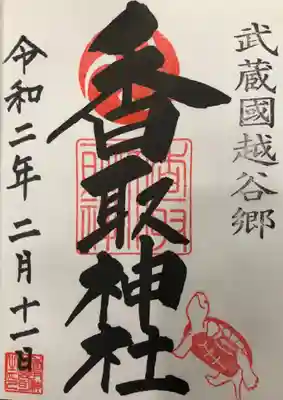 武蔵國越谷郷
香取神社
令和二年二月十一日